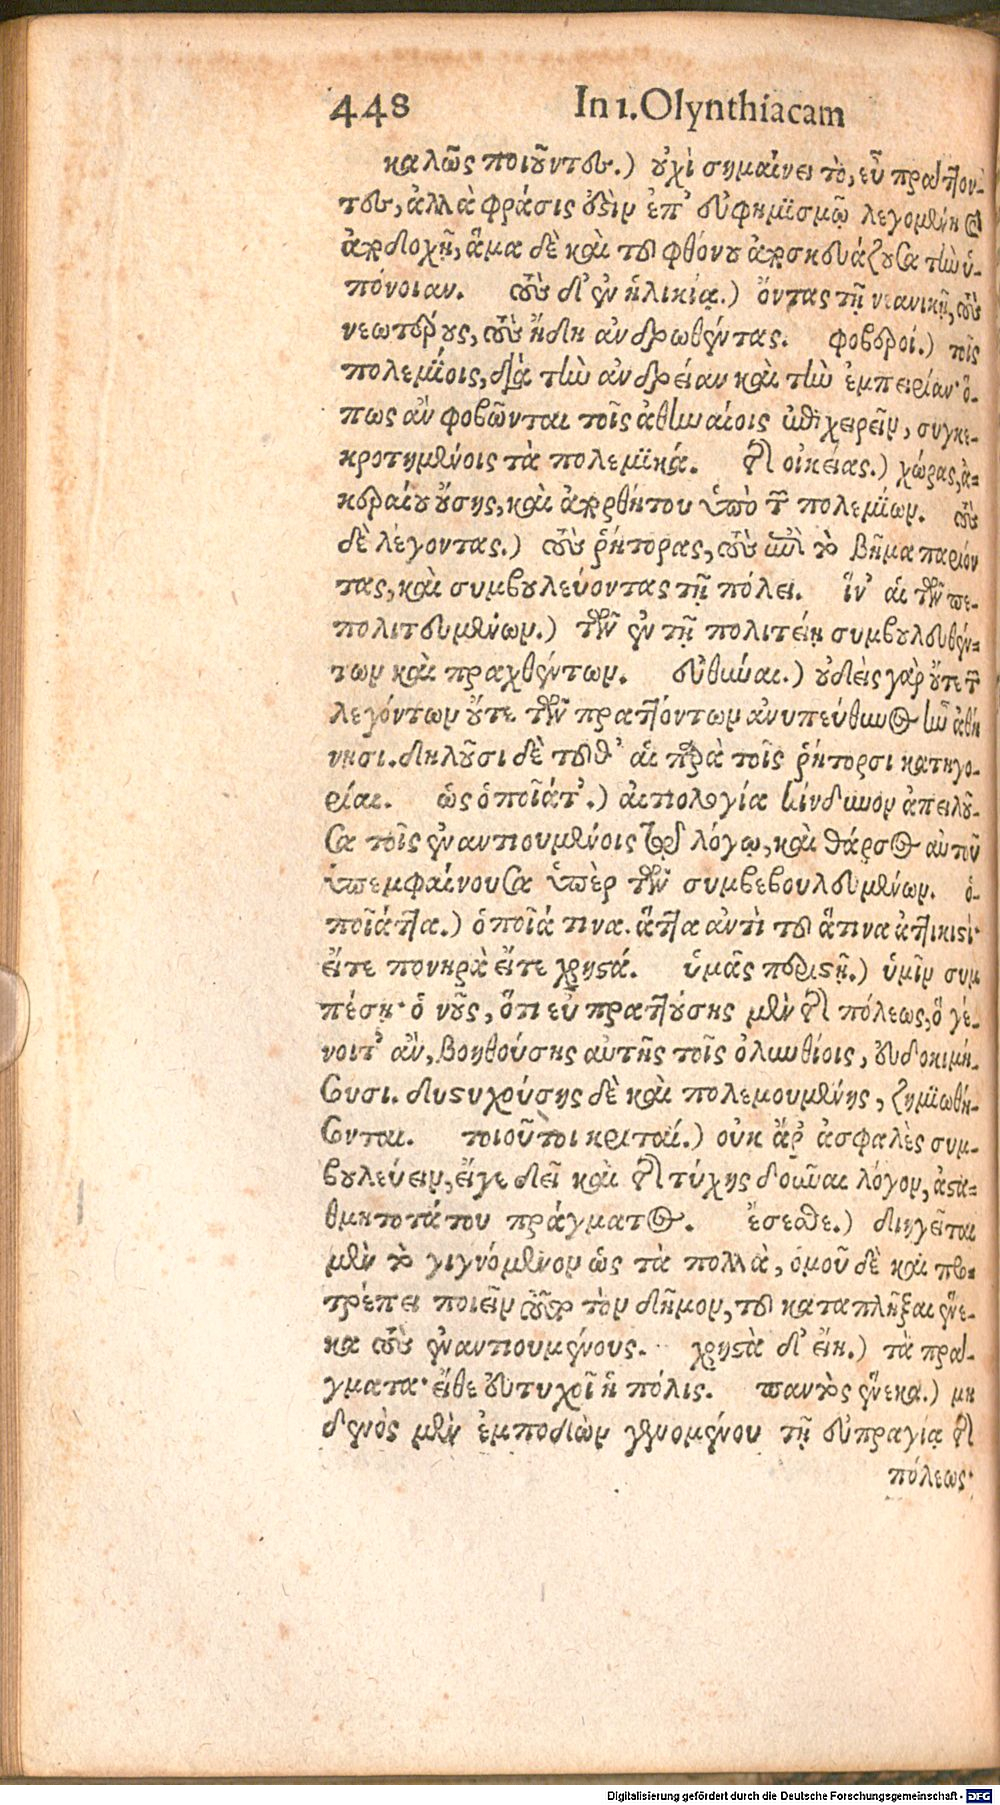 448 In 1. Olynthiacam
καλῶς ποιοῦντες.) οὐχὶ σημαίνει τὸ, εὖ πράττον-
τες, ἀλλὰ φράσις ἐστὶν ἐπ' εὐφημισμῷ λεγομένη ἐν
ἀποδοχῇ, ἅμα δὲ καὶ τοῦ φθόνου ἀποσκευάζουσα τὴν ὑ-
πόνοιαν. τοὺς δ' ἐν ἡλικίᾳ.) ὄντας τῇ νεανικῇ, τοὺς
νεωτέρους, τοὺς ἤδη ἀνδρωθέντας. φοβεροί.) τοῖς
πολεμίοις, διὰ τὴν ἀνδρείαν καὶ τὴν ἐμπειρίαν· ὅ-
πως ἂν φοβῶνται τοῖς ἀθηναίοις ἐπιχειρεῖν, συγκε-
κροτημένοις τὰ πολεμικά. τῆς οἰκείας.) χώρας, ἀ-
κεραίου οὔσης, καὶ ἀπορθήτου ὑπὸ τῶν πολεμίων. τοὺς
δὲ λέγοντας.) τοὺς ῥήτορας, τοὺς ἐπὶ τὸ βῆμα παριόν
τας, καὶ συμβουλεύοντας τῇ πόλει. ἵν' αἱ τῶν πε-
πολιτευμένων.) τῶν ἐν τῇ πολιτείᾳ συμβουλευθέν-
των καὶ πραχθέντων. εὔθυναι.) οὐδεὶς γὰρ οὔτε τῶν
λεγόντων οὔτε τῶν πραττόντων ἀνυπεύθυνος ἦν ἀθή
νησι. δηλοῦσι δὲ τοῦθ' αἱ παρὰ τοῖς ῥήτορσι κατηγο-
ρίαι. ὡς ὁποῖάτ'.) αἰτιολογία κίνδυνον ἀπειλοῦ-
σα τοῖς ἐναντιουμένοις τῷ λόγῳ, καὶ θάρσος αὐτοῦ
ὑπεμφαίνουσα ὑπὲρ τῶν συμβεβουλευμένων. ὁ-
ποῖάττα.) ὁποῖά τινα. ἅττα ἀντὶ τοῦ ἅτινα ἀττικιστί·
εἴτε πονηρὰ εἴτε χρηστά. ὑμᾶς περιστῇ.) ὑμῖν συμ
πέσῃ· ὁ νοῦς, ὅτι εὖ πραττούσης μὲν τῆς πόλεως, ὃ γέ-
νοιτ' ἂν, βοηθούσης αὐτῆς τοῖς ὀλυνθίοις, εὐδοκιμή-
σουσι. δυστυχούσης δὲ καὶ πολεμουμένης, ζημιωθή-
σονται. τοιοῦτοι κριταί.) οὐκ ἄρ' ἀσφαλὲς συμ-
βουλεύειν, εἴγε δεῖ καὶ τῆς τύχης δοῦναι λόγον, ἀστα-
θμητοτάτου πράγματος. ἔσεσθε.) διηγεῖται
μὲν τὸ γιγνόμενον ὡς τὰ πολλὰ, ὁμοῦ δὲ καὶ προ-
τρέπει ποιεῖν τοῦτο τὸν δῆμον, τοῦ καταπλῆξαι ἕνε-
κα τοὺς ἐναντιουμένους. χρηστὰ δ' εἴη.) τὰ πρά-
γματα· εἴθε εὐτυχοῖ ἡ πόλις. παντὸς ἕνεκα.) μη
δενὸς μὲν ἐμποδὼν γενομένου τῇ εὐπραγίᾳ τῆς
πόλεως·
Digitalisierung gefördert durch die Deutsche Forschungsgemeinschaft - DFG